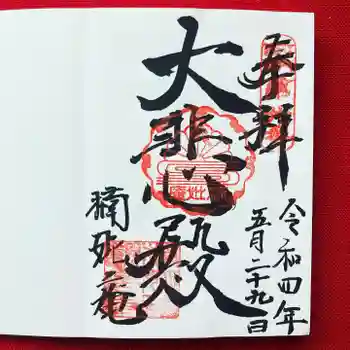 奉拝
令和四年
五月二十九日
大悲殿
楠妣庵